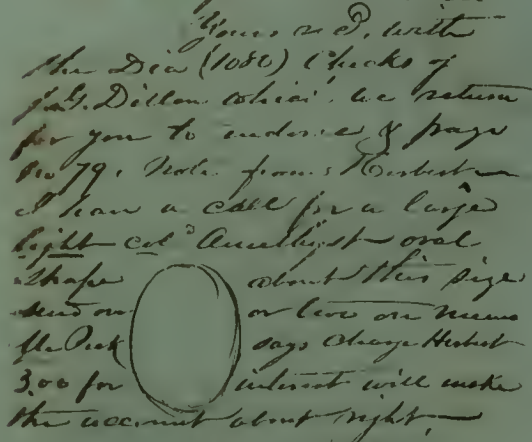 Yours rec'd, with
the Dia (1080) Checks of
J.G. Dillon which we return
for you to indorse & page
no 79. Note from Herbert
I have a call for a large
light col'd Amethyst oval
shape about this size
send on or two on memo
Mr Peck says charge Herbert
3.00 for interest will make
the account about right.